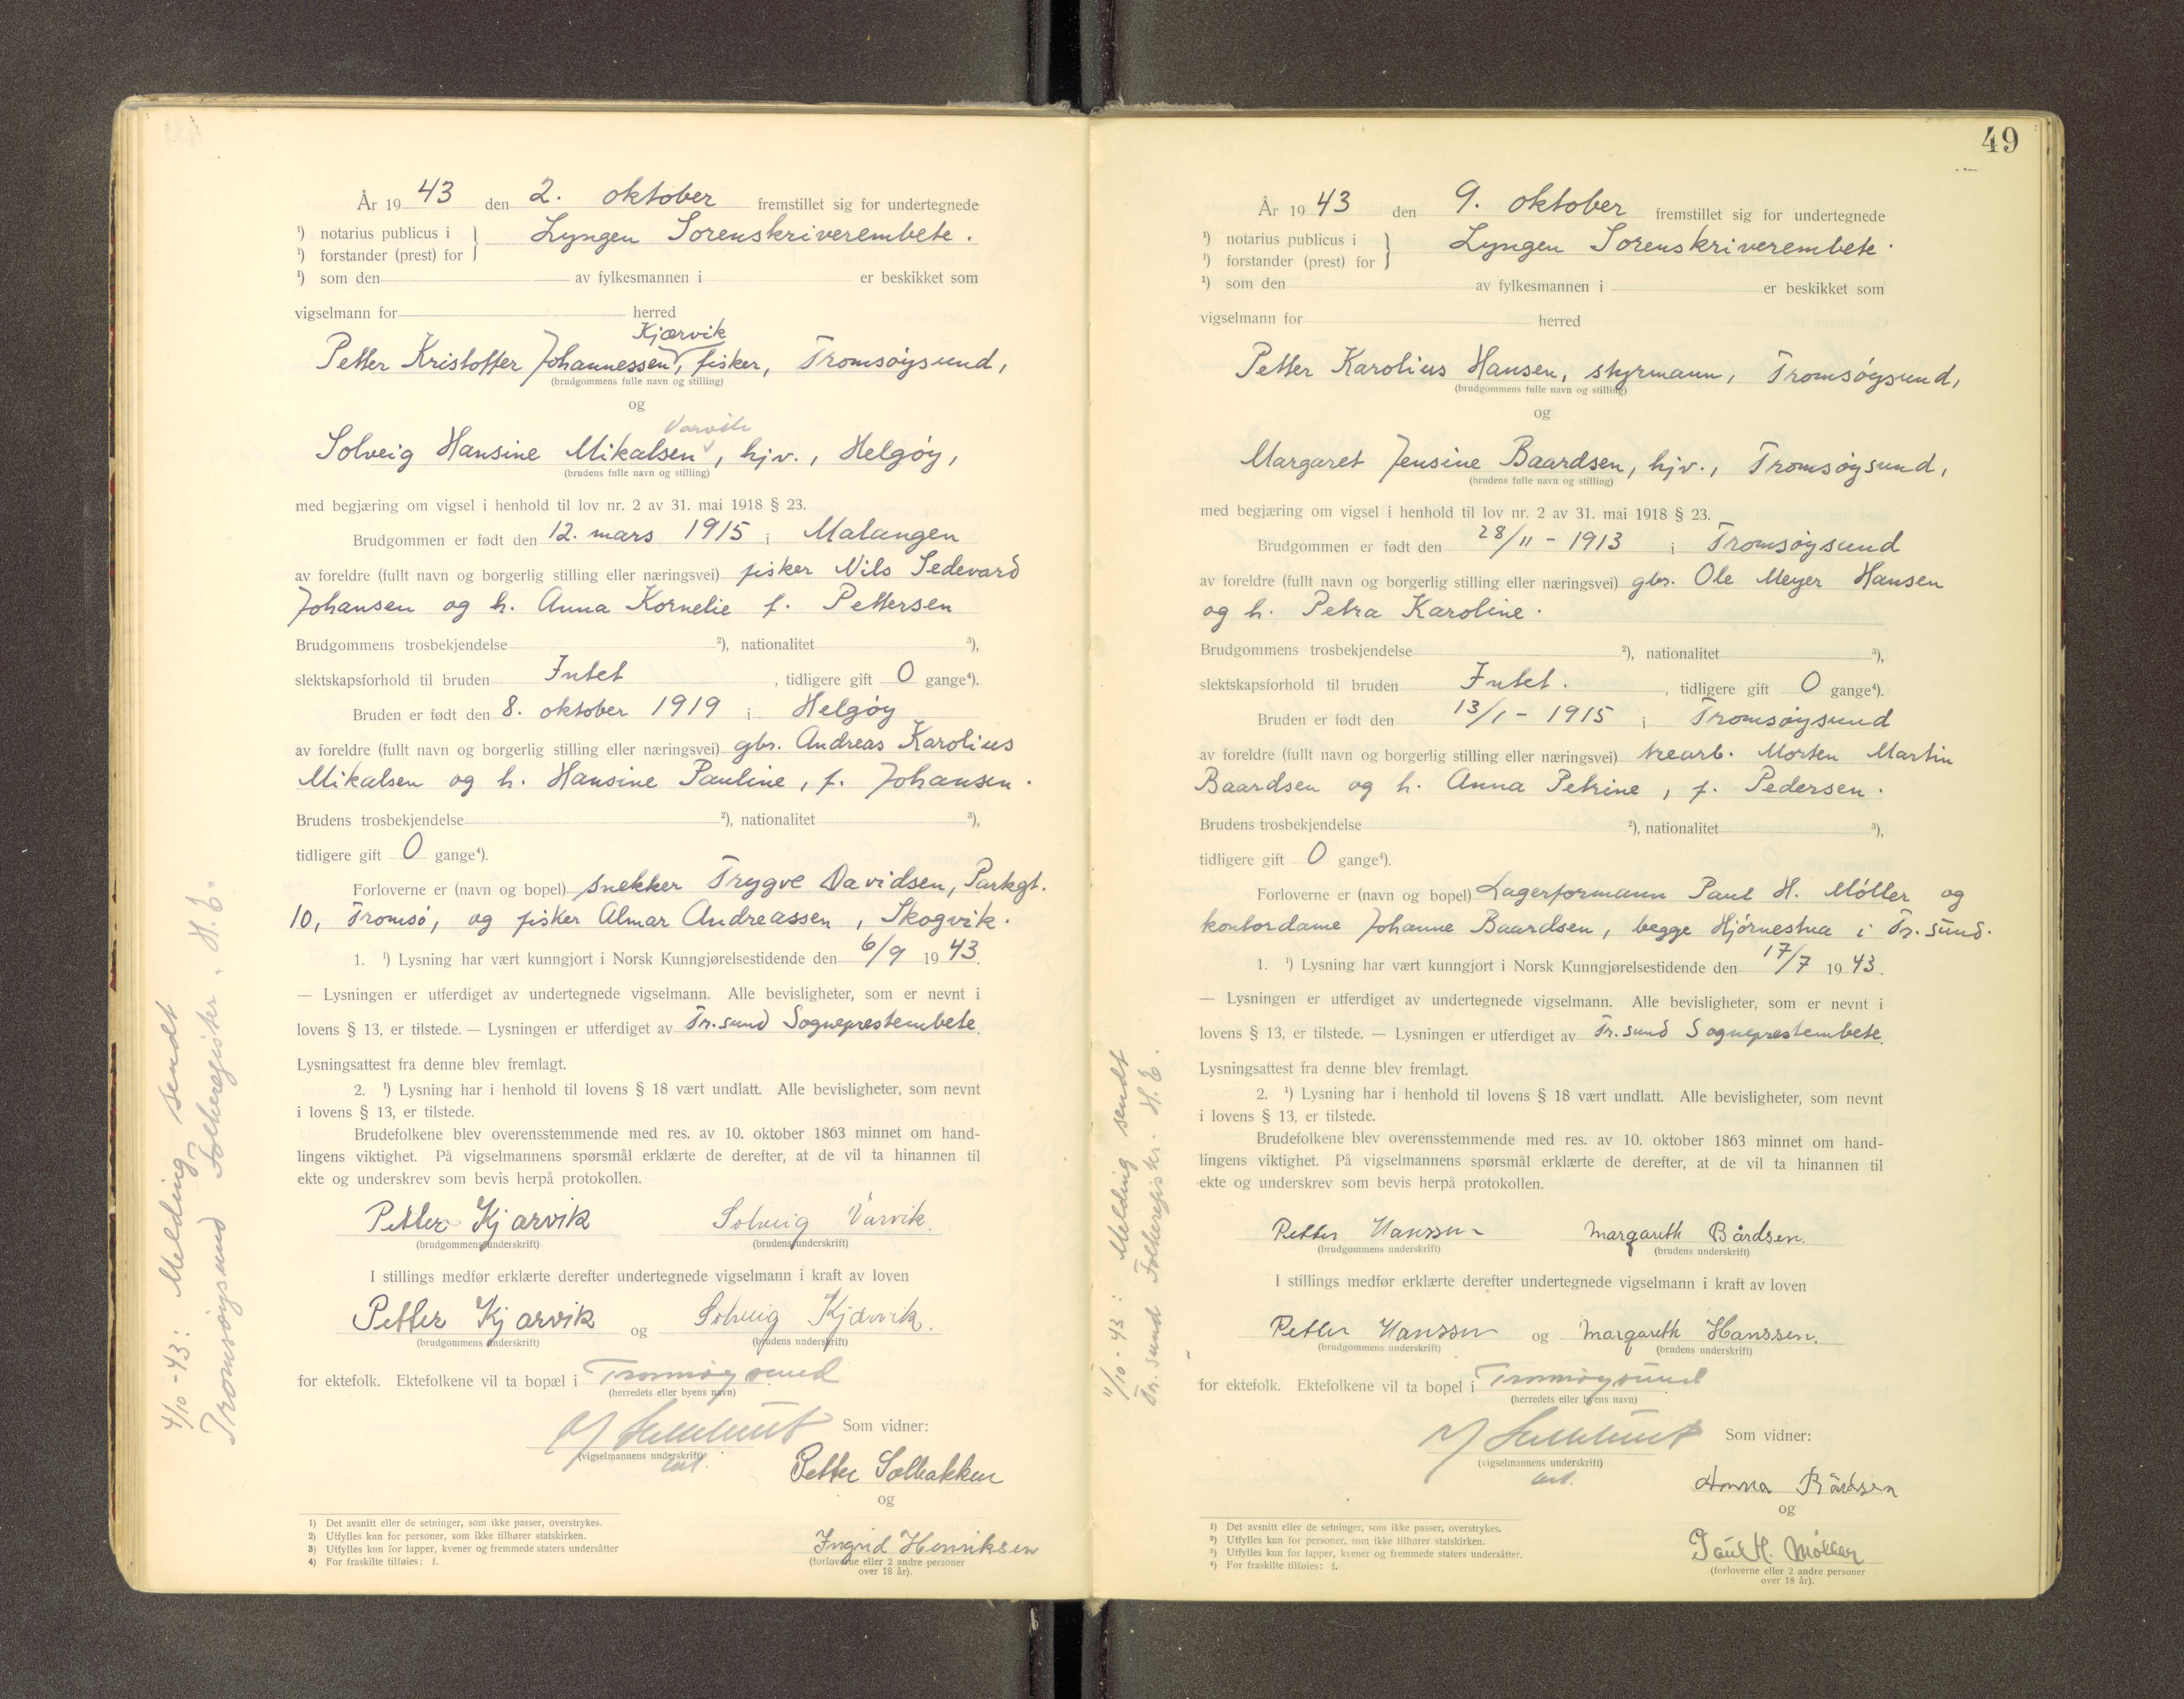 År 19 43 den 2. oktober fremstillet sig for undertegnede
¹) notarius publicus i } Lyngen Sorenskriverembete.
¹) forstander (prest) for
¹) som den av fylkesmannen i er beskikket som
vigselmann for herred
Kjærvik
Petter Kristoffer Johannessen, fisker, Tromsøysund,
(brudgommens fulle navn og stilling)
og
Varvik
Solveig Hansine Mikalsen, hjv., Helgøy,
(brudens fulle navn og stilling)
med begjæring om vigsel i henhold til lov nr. 2 av 31. mai 1918 § 23.
Brudgommen er født den 12. mars 1915 i Malangen
av foreldre (fullt navn og borgerlig stilling eller næringsvei) fisker Nils Sedevard
Johansen og h. Anna Kornelie f. Pettersen
Brudgommens trosbekjendelse ²), nationalitet ³),
slektskapsforhold til bruden Intet, tidligere gift 0 gange⁴).
Bruden er født den 8. oktober 1919 i Helgøy
av foreldre (fullt navn og borgerlig stilling eller næringsvei) gbr. Andreas Karolius
Mikalsen og h. Hansine Pauline, f. Johansen.
Brudens trosbekjendelse ²), nationalitet ³),
tidligere gift 0 gange⁴).
Forloverne er (navn og bopel) snekker Trygve Davidsen, Parkgt.
10, Tromsø, og fisker Almar Andreassen, Skogvik.
1. ¹) Lysning har vært kunngjort i Norsk Kunngjørelsestidende den 6/9 19 43.
— Lysningen er utferdiget av undertegnede vigselmann. Alle bevisligheter, som er nevnt i
lovens § 13, er tilstede. — Lysningen er utferdiget av Tr.sund Sogneprestembete.
Lysningsattest fra denne blev fremlagt.
2. ¹) Lysning har i henhold til lovens § 18 vært undlatt. Alle bevisligheter, som nevnt
i lovens § 13, er tilstede.
Brudefolkene blev overensstemmende med res. av 10. oktober 1863 minnet om hand-
lingens viktighet. På vigselmannens spørsmål erklærte de derefter, at de vil ta hinannen til
ekte og underskrev som bevis herpå protokollen.
Petter Kjærvik Solveig Varvik.
(brudgommens underskrift) (brudens underskrift)
I stillings medfør erklærte derefter undertegnede vigselmann i kraft av loven
Petter Kjærvik og Solveig Kjærvik.
(brudgommens underskrift) (brudens underskrift)
for ektefolk. Ektefolkene vil ta bopæl i Tromsøysund
(herredets eller byens navn)
Som vidner:
(vigselmannens underskrift)
Petter Solbakken
og
Ingrid Henriksen
(forloverne eller 2 andre personer
over 18 år).
1) Det avsnitt eller de setninger, som ikke passer, overstrykes.
2) Utfylles kun for personer, som ikke tilhører statskirken.
3) Utfylles kun for lapper, kvener og fremmede staters undersåtter
4) For fraskilte tilføies: f.
4/10-43: Melding sendt
Tromsøysund Folkeregister. H.E.
49
År 19 43 den 9. oktober fremstillet sig for undertegnede
¹) notarius publicus i } Lyngen Sorenskriverembete.
¹) forstander (prest) for
¹) som den av fylkesmannen i er beskikket som
vigselmann for herred
Petter Karolius Hansen, styrmann, Tromsøysund,
(brudgommens fulle navn og stilling)
og
Margaret Jensine Baardsen, hjv., Tromsøysund,
(brudens fulle navn og stilling)
med begjæring om vigsel i henhold til lov nr. 2 av 31. mai 1918 § 23.
Brudgommen er født den 28/11 - 1913 i Tromsøysund
av foreldre (fullt navn og borgerlig stilling eller næringsvei) gbr. Ole Meyer Hansen
og h. Petra Karoline.
Brudgommens trosbekjendelse ²), nationalitet ³),
slektskapsforhold til bruden Intet., tidligere gift 0 gange⁴).
Bruden er født den 13/1 - 1915 i Tromsøysund
av foreldre (fullt navn og borgerlig stilling eller næringsvei) trearb. Morten Martin
Baardsen og h. Anna Petrine, f. Pedersen.
Brudens trosbekjendelse ²), nationalitet ³),
tidligere gift 0 gange⁴).
Forloverne er (navn og bopel) Lagerformann Paul H. Møller og
kontordame Johanne Baardsen, begge Hjørnestua i Tr.sund.
1. ¹) Lysning har vært kunngjort i Norsk Kunngjørelsestidende den 17/7 19 43.
— Lysningen er utferdiget av undertegnede vigselmann. Alle bevisligheter, som er nevnt i
lovens § 13, er tilstede. — Lysningen er utferdiget av Tr.sund Sogneprestembete.
Lysningsattest fra denne blev fremlagt.
2. ¹) Lysning har i henhold til lovens § 18 vært undlatt. Alle bevisligheter, som nevnt
i lovens § 13, er tilstede.
Brudefolkene blev overensstemmende med res. av 10. oktober 1863 minnet om hand-
lingens viktighet. På vigselmannens spørsmål erklærte de derefter, at de vil ta hinannen til
ekte og underskrev som bevis herpå protokollen.
Petter Hanssen Margareth Bårdsen.
(brudgommens underskrift) (brudens underskrift)
I stillings medfør erklærte derefter undertegnede vigselmann i kraft av loven
Petter Hanssen og Margareth Hanssen.
(brudgommens underskrift) (brudens underskrift)
for ektefolk. Ektefolkene vil ta bopel i Tromsøysund
(herredets eller byens navn)
Som vidner:
(vigselmannens underskrift)
Anna Bårdsen
og
Paul H. Møller
(forloverne eller 2 andre personer
over 18 år).
1) Det avsnitt eller de setninger, som ikke passer, overstrykes.
2) Utfylles kun for personer, som ikke tilhører statskirken.
3) Utfylles kun for lapper, kvener og fremmede staters undersåtter.
4) For fraskilte tilføies: f.
11/10-43: Melding sendt
Tr.sund Folkeregister. H.E.